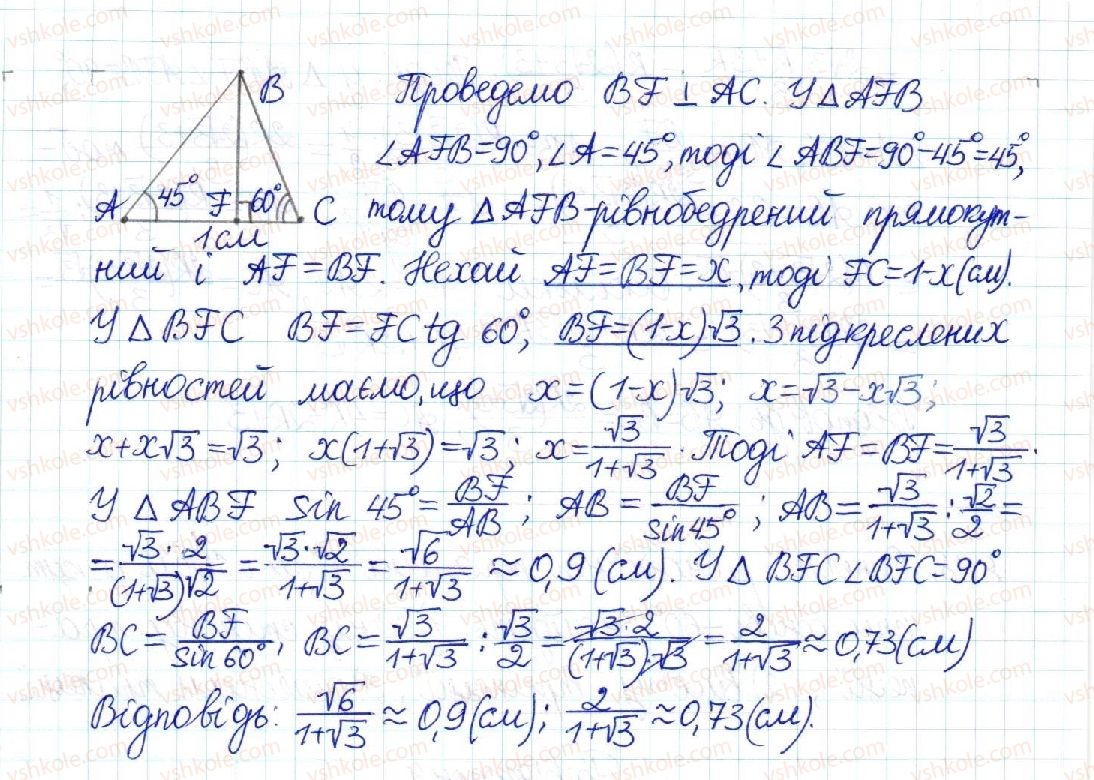 B
A 45° F 60° C
1 см
Проведемо BF ⊥ AC. У △ AFB
∠AFB=90°, ∠A=45°, тоді ∠ABF=90°-45°=45°,
тому △ AFB-рівнобедрений прямокут-
ний і AF=BF. Нехай AF=BF=x, тоді FC=1-x(см).
У △ BFC BF=FC tg 60°, BF=(1-x)√3. З підкреслених
рівностей маємо, що x=(1-x)√3; x=√3-x√3;
x+x√3=√3; x(1+√3)=√3; x=√3/(1+√3). Тоді AF=BF=√3/(1+√3).
У △ ABF sin 45°=BF/AB; AB=BF/sin45°; AB=√3/(1+√3):√2/2=
=√3·2/((1+√3)√2)=√3·√2/(1+√3)=√6/(1+√3)≈0,9(см). У △ BFC ∠BFC=90°
BC=BF/sin60°, BC=√3/(1+√3):√3/2=√3·2/((1+√3)·√3)=2/(1+√3)≈0,73(см)
Відповідь: √6/(1+√3)≈0,9(см); 2/(1+√3)≈0,73(см).